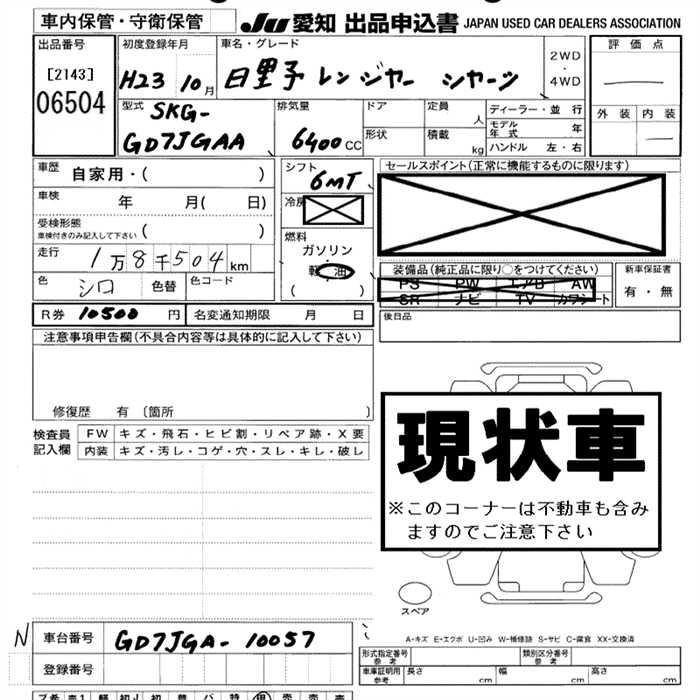 車内保管・守衛保管
JU 愛知 出品申込書 JAPAN USED CAR DEALERS ASSOCIATION
出品番号
[2143]
06504
初度登録年月
H23 10月
車名・グレード
日野 レンジャー シャーシ
2WD
・
4WD
評価点
外装 内装
型式
SKG-
GD7JGAA
排気量
6400CC
ドア
形状
定員
人
積載
kg
ディーラー・並 行
モデル年式 年
ハンドル 左・右
車歴
自家用・( )
車検
年 月( 日)
受検形態
車検付きのみ記入して下さい ( )
走行
1万8千504km
色
シロ
色替
色コード
シフト
6MT
冷房
燃料
ガソリン
軽油
( )
セールスポイント(正常に機能するものに限ります)
装備品(純正品に限り〇をつけてください)
PS PW エアB AW
SR ナビ TV カワシート
新車保証書
有・無
R券 10500円
名変通知期限 月 日
後日品
注意事項申告欄(不具合内容等は具体的に記入して下さい)
修復歴 有 〔箇所 〕
検査員
記入欄
FW キズ・飛石・ヒビ割・リペア跡・X要
内装 キズ・汚レ・コゲ・穴・スレ・キレ・破レ
現状車
※このコーナーは不動車も含み
ますのでご注意下さい
スペア
N
車台番号 GD7JGA-10057
登録番号
A-キズ E-エクボ U-凹み W-補修跡 S-サビ C-腐食 XX-交換済
形式指定番号
参考
類別区分番号
参考
車庫証明用
参考
長さ cm 幅 cm 高さ cm